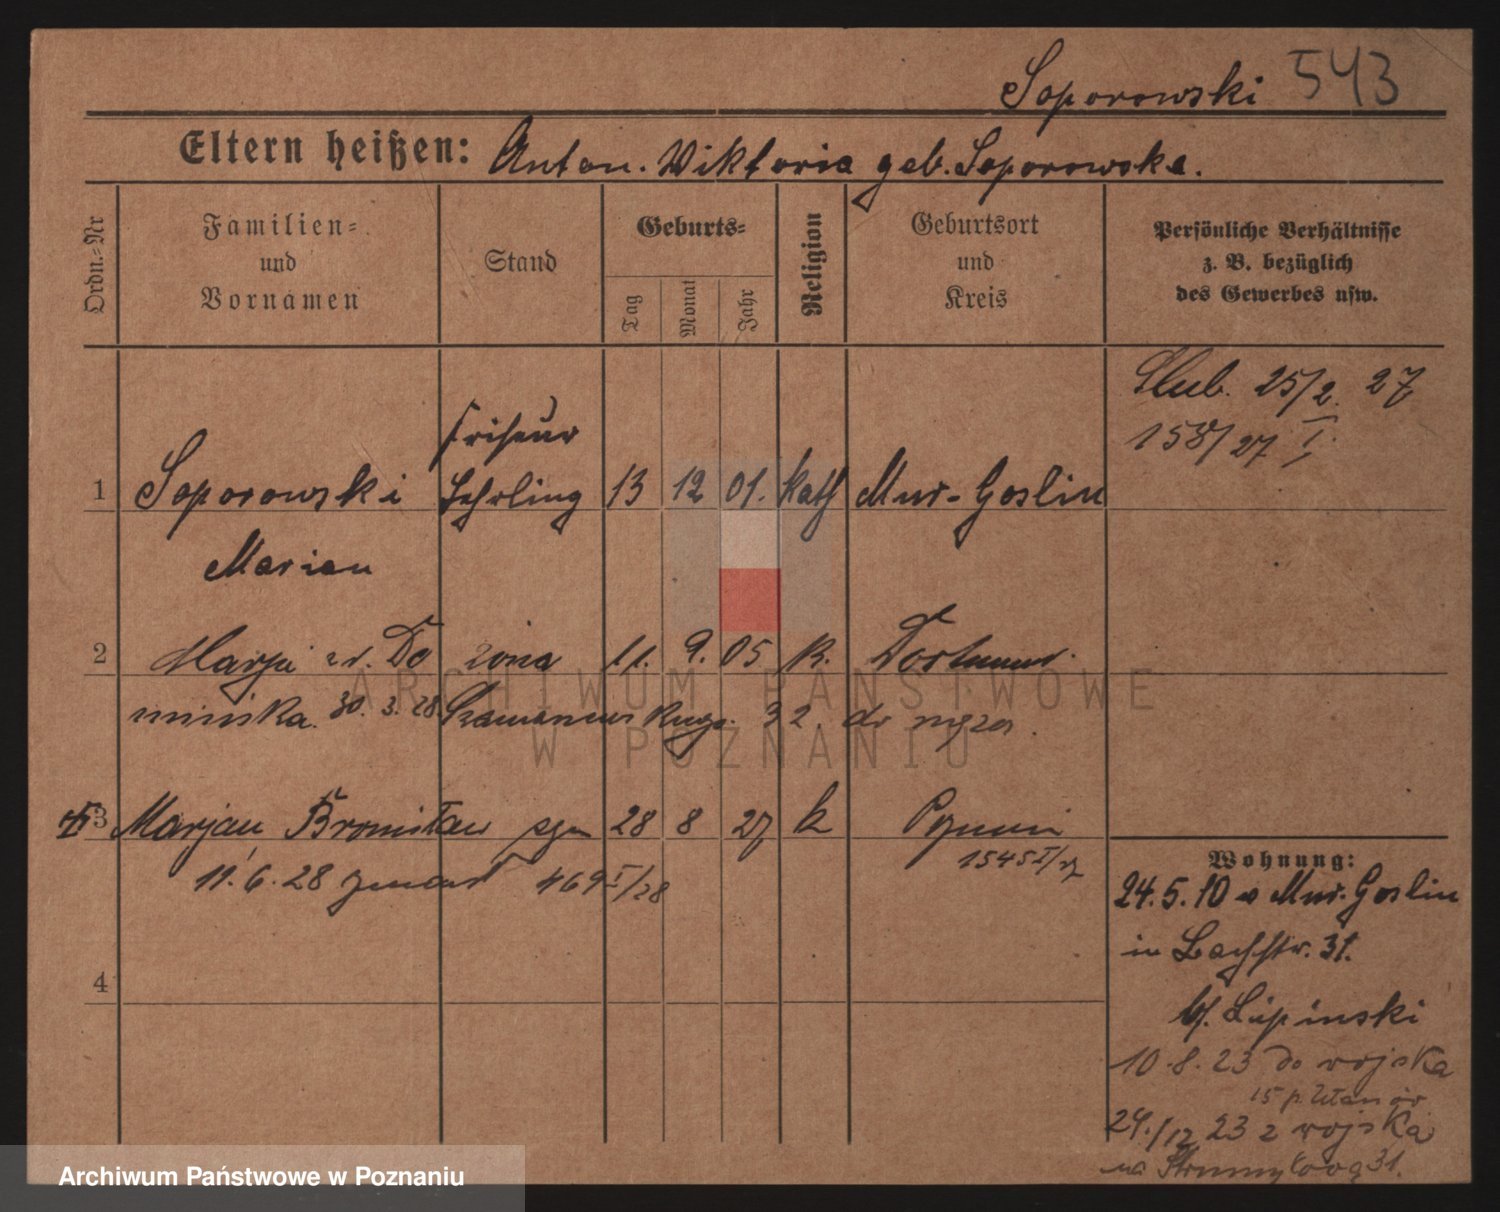 Soporowski 543
Eltern heißen: Anton. Wiktoria geb. Soporowska.
Ordn.-Nr
Familien- und Vornamen
Stand
Geburts-
Tag
Monat
Jahr
Religion
Geburtsort und Kreis
Persönliche Verhältnisse
z. B. bezüglich
des Gewerbes usw.
Ślub. 25/2. 27
/27 I.
Friseur
1 Soporowski Lehrling 13 12 01. kath Mur-Goslin
Marian
2 Marja Do żona 11. 9. 05 k. Dortmund.
mińska. 30. 3. 28 32. do męża.
3 Marjan Bronisław syn 28 8 27 k Poznań
1545 I/27
11. 6. 28 zmarł 469 I/28
4
Wohnung:
24. 5. 10 v Mur. Goslin
in Bachstr. 31.
b/. Lipinski
10. 8. 23 do wojska
15 p. Ułanów
24./12 23 z wojska
na Strumykowa 31.
ARCHIWUM PAŃSTWOWE
W POZNANIU
Archiwum Państwowe w Poznaniu